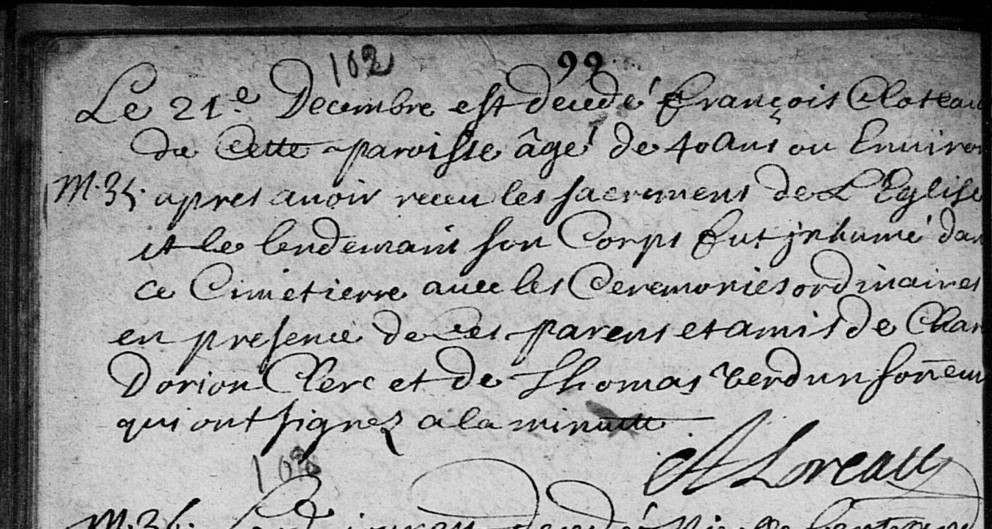 102 99
Le 21.e Decembre est decedé françois Cloteau
de Cette paroisse âgé de 40 ans ou Environ
M.35. apres avoir receu les sacremens de L'Eglise
et le lendemain son Corps fut inhumé dan
ce Cimetierre avec les Ceremonies ordinaires
en presence de Ces parens et amis de Char
Dorion Clerc et de Thomas Verdun sonneur
qui ont signez a la minutte
A Loreau
M.36.